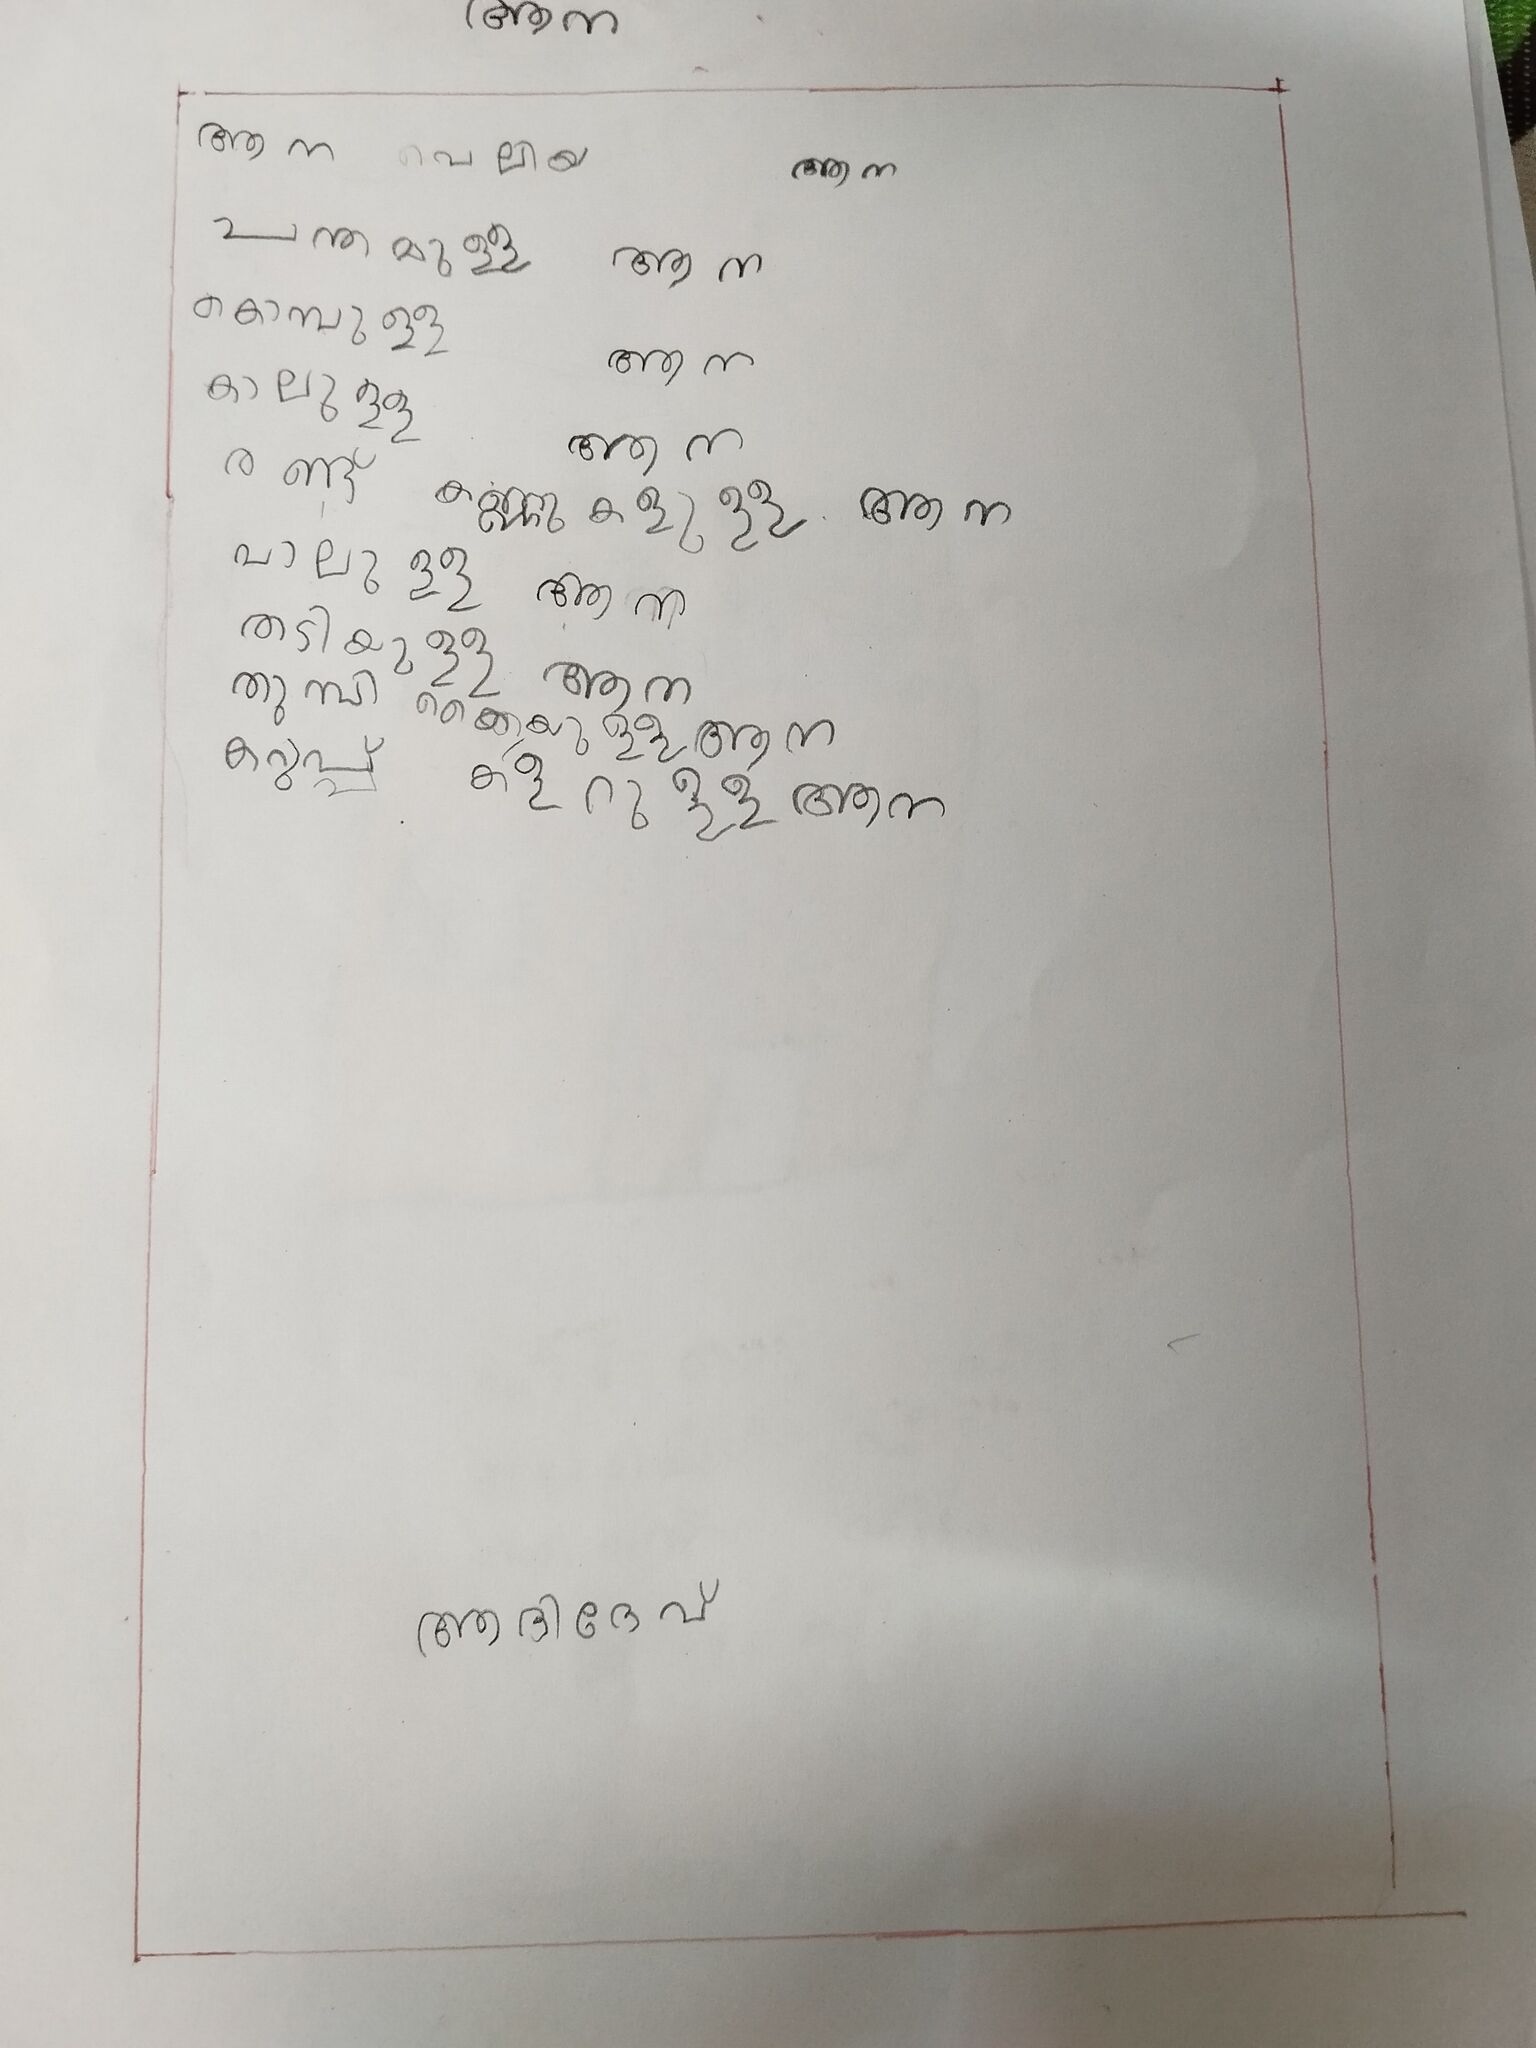 ആന
ആന വെലിയ ആന
ചന്തമുള്ള ആന
കൊമ്പുള്ള ആന
കാലുള്ള ആന
രണ്ട് കണ്ണുകളുള്ള ആന
വാലുള്ള ആന
തടിയുള്ള ആന
തുമ്പി കൈയുള്ള ആന
കറുപ്പ് കളറുള്ള ആന
ആദിദേവ്